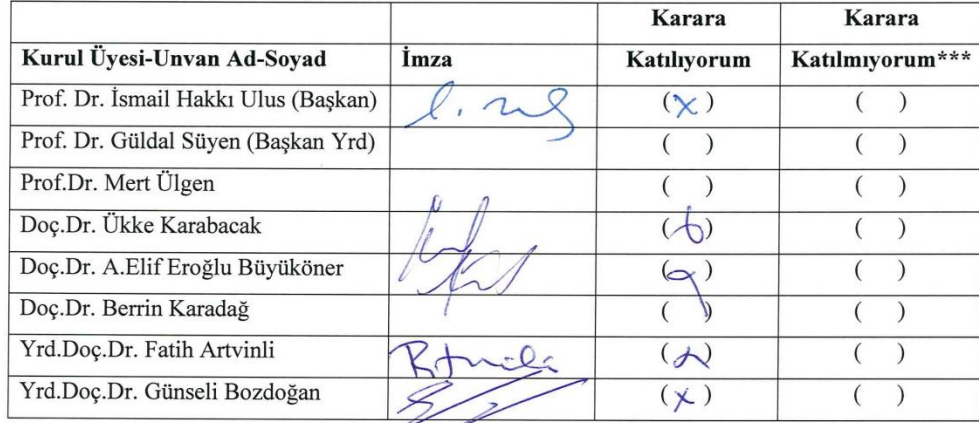 Kurul Üyesi-Unvan Ad-Soyad İmza Karara Katılıyorum Karara Katılmıyorum***
Prof. Dr. İsmail Hakkı Ulus (Başkan) (x) ( )
Prof. Dr. Güldal Süyen (Başkan Yrd) ( ) ( )
Prof.Dr. Mert Ülgen ( ) ( )
Doç.Dr. Ükke Karabacak ( ) ( )
Doç.Dr. A.Elif Eroğlu Büyüköner ( ) ( )
Doç.Dr. Berrin Karadağ ( ) ( )
Yrd.Doç.Dr. Fatih Artvinli ( ) ( )
Yrd.Doç.Dr. Günseli Bozdoğan (x) ( )